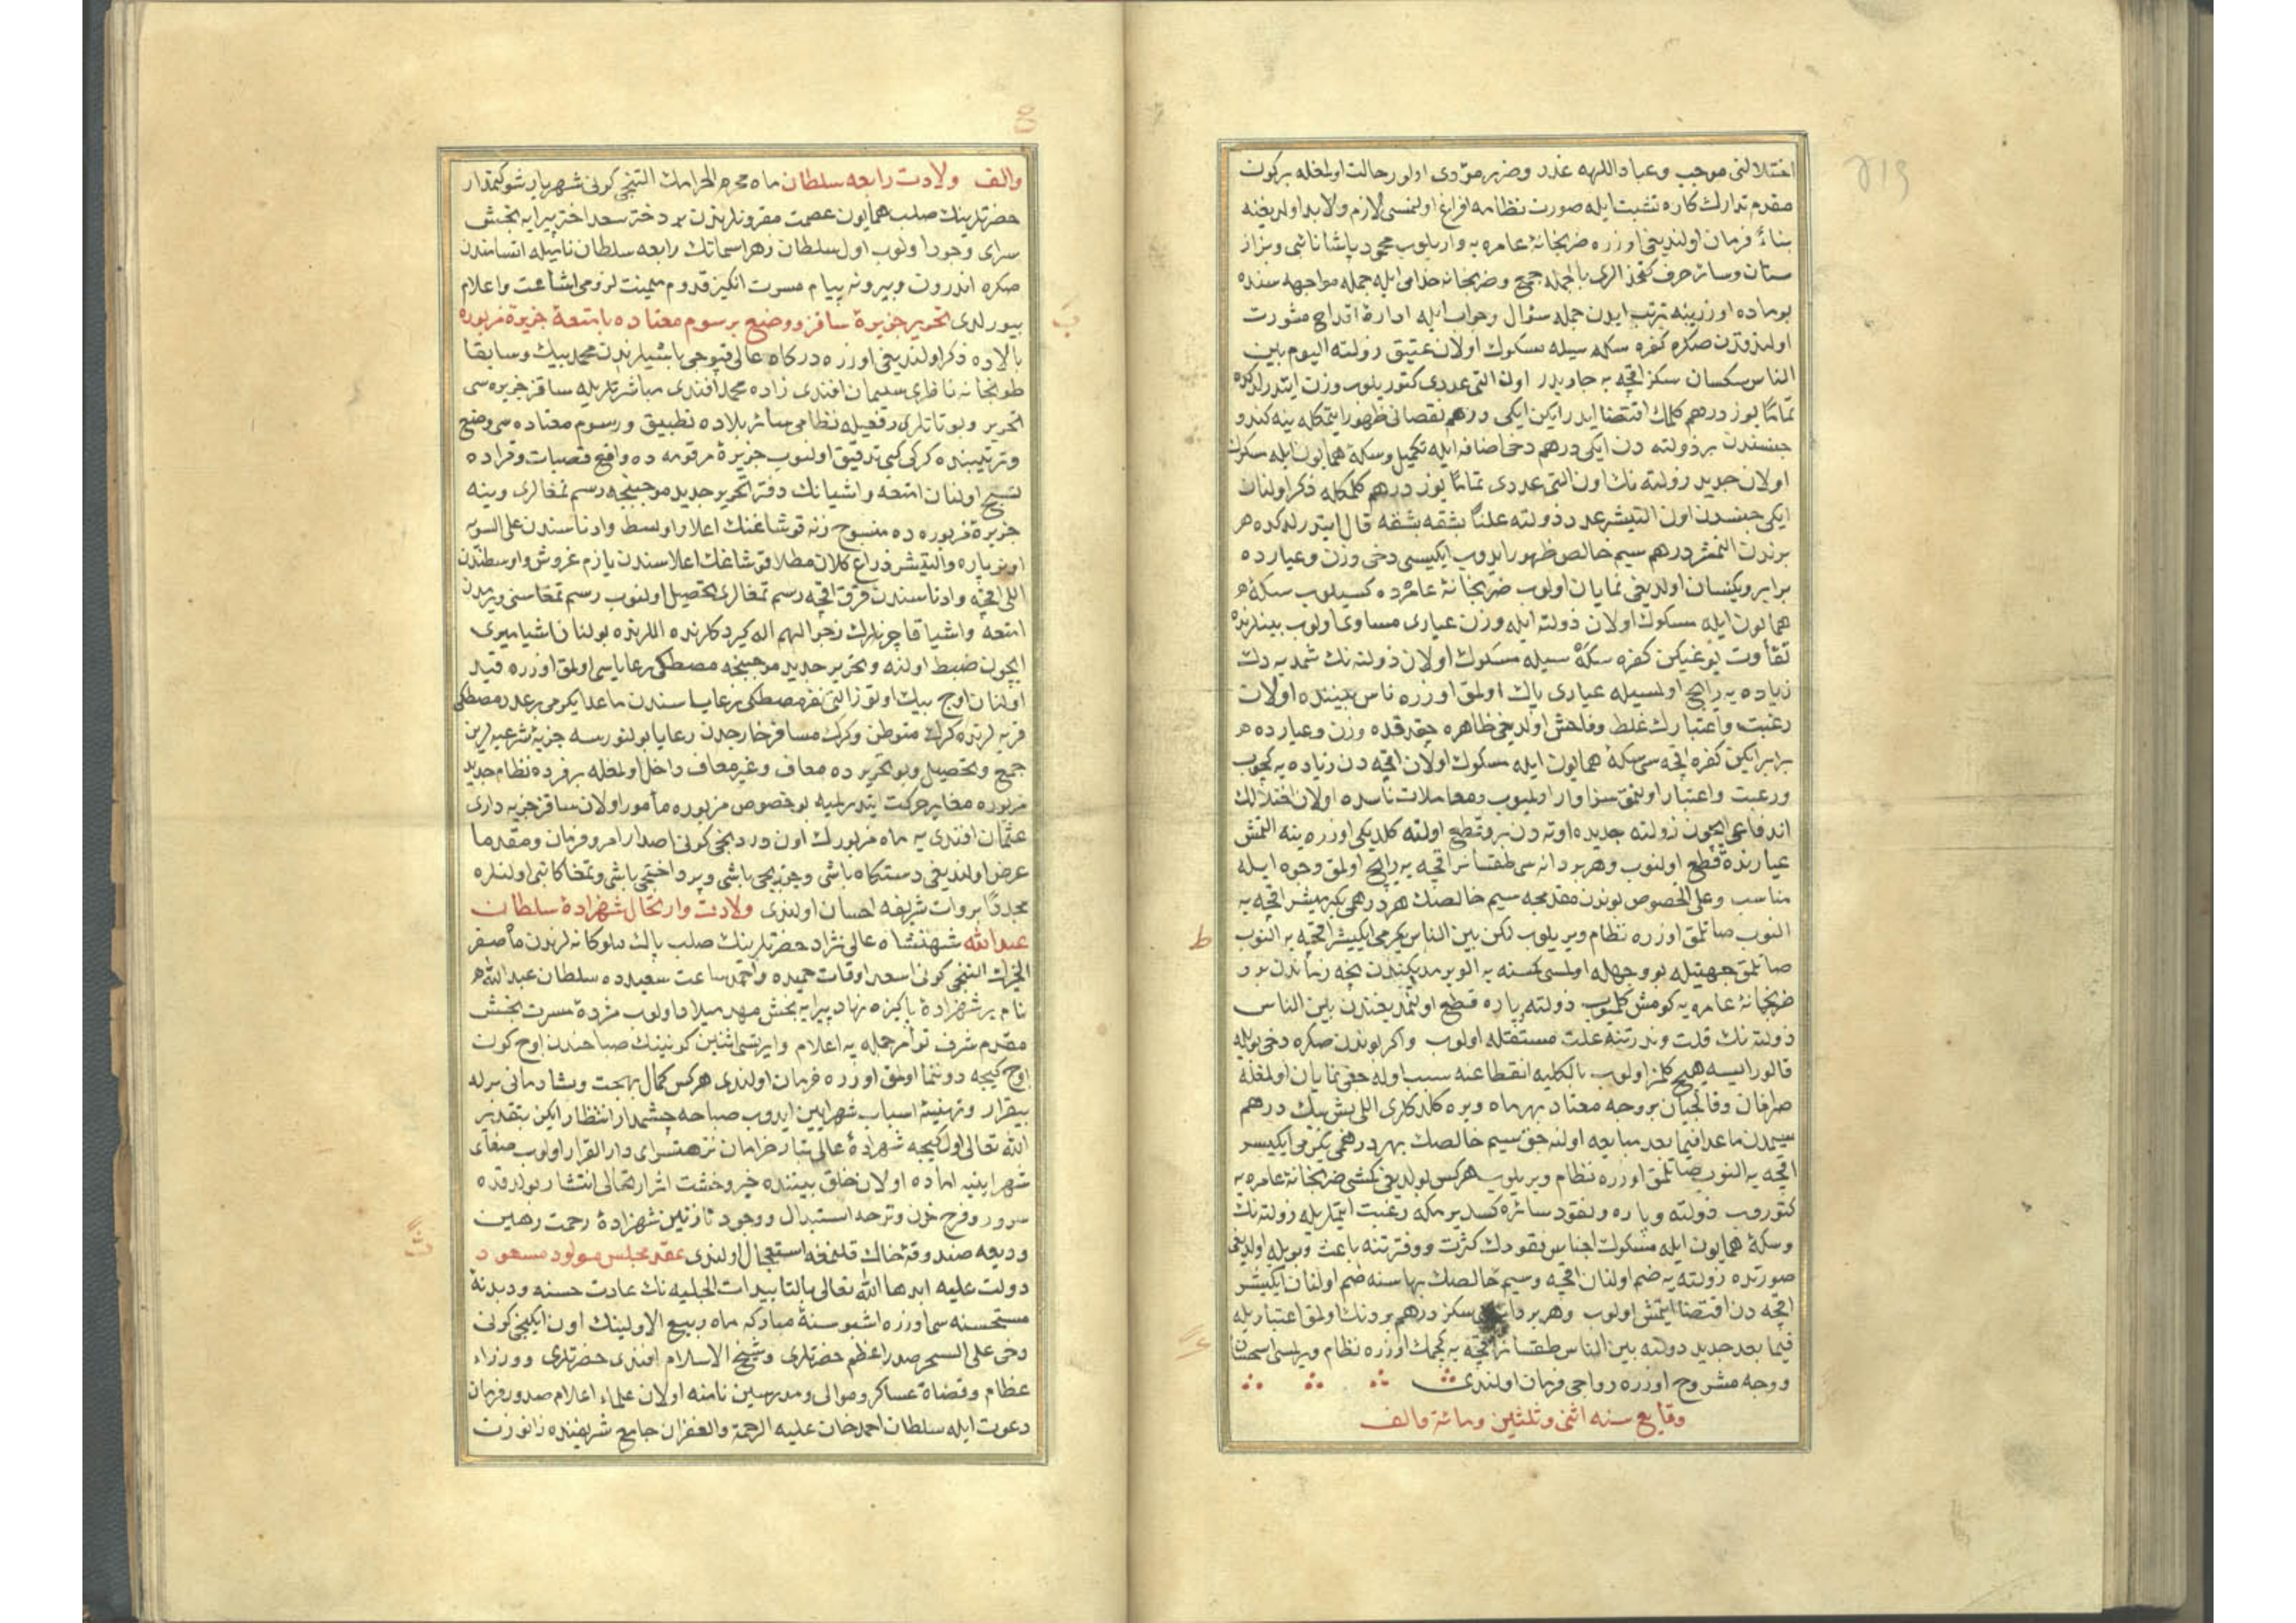 اختلالنى موجب وعباد اللهه غدر وضرر مؤدى اولور حالت اولمغله بركون
مقدم تدارك كاره تشبث ايله صورت نظامه افراغ اولنمسى لازم ولابد اولديغنه
بناءً فرمان اولنديغى اوزره ضربخانهٔ عامره يه واريلوب محمود پاشا ناشى وبزاز
ستان وسائر حرف كتخدالرى بالجمله جمع وضربخانه خدامى ايله جمله مواجهه سنده
بوماده اوزرينه ترتب ايدن جمله سؤال وجواب ايله ادارهٔ اقداح مشورت
اولندقدن صكره كفره سكه سيله مسكوك اولان عتيق زولته اليوم بين
الناس سكسان سكز اقچه يه جاريدر اون التى عددى كتوريلوب وزن ايتدرلدكده
تمامًا يوز درهم كلمك اقتضا ايدر ايكن ايكى درهم نقصانى ظهور ايتمكله ينه كندو
جنسندن بر ذولته دن ايكى درهم دخى اضافه ايله تكميل وسكهٔ همايون ايله مسكوك
اولان جديد زولته نك اون التى عددى تمامًا يوز درهم كلمكله ذكر اولنان
ايكى جنسدن اون التيشر عدد ذولته علنًا بشقه بشقه قال ايتدرلدكده هر
برندن التمشر درهم سيم خالص ظهور ايدوب ايكيسى دخى وزن وعيارده
برابر ويكسان اولديغى نمايان اولوب ضربخانهٔ عامره ده كسيلوب سكهٔ
همايون ايله مسكوك اولان ذولته ايله وزن عيارى مساوى اولوب بينلرنده
تفاوت يوغيكن كفره سكه سيله مسكوك اولان ذولته نك شمديه دك
زياده يه رايج اولمسيله عيارى پاك اولمق اوزره ناس بيننده اولان
رغبت واعتبارك غلط وفاحش اولديغى ظاهره چقدقده وزن وعيارده
برابر ايكن كفره اقچه سى سكهٔ همايون ايله مسكوك اولان اقچه دن زياده يه كچوب
ورغبت واعتبار اولنمق سزاوار اولميوب ومعاملات ناسده اولان اختلالك
اندفاعى ايچون زولته جديده اوته دن برو قطع اولنه كلديكى اوزره ينه التمش
عيارنده قطع اولنوب وهر بر دانه سى طقسانر اقچه يه رايج اولمق وجوه ايله
مناسب وعلى الخصوص بوندن مقدمجه سيم خالصك هر درهمى يكرميشر اقچه يه
النوب صاتلمق اوزره نظام ويريلوب لكن بين الناس يكرمى ايكيشر اقچه يه النوب
صاتلمق جهتيله بو وجهله اولسى كمسنه يه الويرمديكندن نيجه زماندن برو
ضربخانهٔ عامره يه كومش كلميوب ذولته پاره قطع اولنمديغندن بين الناس
ذولته نك قلت وندرتنه علت مستقله اولوب واكر بوندن صكره دخى بويله
قالور ايسه هيچ كلمز اولوب بالكليه انقطاعنه سبب اوله جغى نمايان اولمغله
صرافان وقالجيان بر وجه معتاد بهر ماه ويره كلدكلرى اللى بش بيك درهم
سيمدن ماعدا فيما بعد مبايعه اولنه جق سيم خالصك بهر درهمى يكرمى ايكيشر
اقچه يه النوب صاتلمق اوزره نظام ويريلوب هركس بولديغى كمشى ضربخانهٔ عامره يه
كتوروب ذولته وپاره ونقود سائره كسديرمكه رغبت ايتملريله زولته نك
وسكهٔ همايون ايله مسكوك اجناس نقودك كثرت ووفرتنه باعث وبويله اولديغى
صورتده زولته يه ضم اولنان اقچه وسيم خالصك بهاسنه ضم اولنان ايكيشر
اقچه دن اقتضا ايتمش اولوب وهر بر دانه سى سكز درهم بر دنك اولمق اعتباريله
فيما بعد جديد ذولته بين الناس طقسانر اقچه يه كچمك اوزره نظام ويرلمسى استحسان
ووجه مشروح اوزره رواجى فرمان اولندى
وقايع سنه اثنى وثلثين ومائة والف
والف ولادت رابعه سلطان ماه محرم الحرامك التنجى كونى شهريار شوكتمدار
حضرتلرينك صلب همايون عصمت مقرونلرندن بر دختر سعد اختر پيرايه بخش
سراى وجود اولوب اول سلطان زهرا سماتك رابعه سلطان ناميله اتسامندن
صكره اندرون وبيرونه پيام مسرت انكيز قدوم ميمنت لزومى اشاعت واعلام
بيورلدى تحرير جزيرهٔ ساقز ووضع بر رسوم معتاده با متعهٔ جزيرهٔ مزبوره
بالاده ذكر اولنديغى اوزره دركاه عالى قپوجى باشيلرندن محمد بيك وسابقا
طوبخانه ناظرى سليمان افندى زاده محمد افندى مباشرتلريله ساقز جزيره سى
تحرير وبوتاتلرى رفعيله نظامى سائر بلاده تطبيق ورسوم معتاده سى وضع
وترتيبنده كركى كبى تدقيق اولنوب جزيرهٔ مرقومه ده واقع قصبات وقراده
نسج اولنان امتعه واشيانك دفتر تحرير جديد موجبنجه رسم تمغالرى وينه
جزيرهٔ مزبوره ده منسوج زنه قوشاغنك اعلا واوسط وادناسندن على السويه
اونر پاره والتيشر ذراع كلان مطلا قوشاغك اعلاسندن يارم غروش واوسطندن
اللى اقچه وادناسندن قرق اقچه رسم تمغالرى تحصيل اولنوب رسم تمغاسنى ويرمدن
امتعه واشيا قاچورنلرك زجرا لهم اله كيردكلرنده اللرنده بولنان اشيا ميرى
ايچون ضبط اولنه وتحرير جديد موجبنجه مصطكى رعاياسى اولمق اوزره قيد
اولنان اوچ بيك اوتوز التى نفر مصطكى رعاياسندن ماعدا يكرمى بر عدد مصطكى
قريه لرنده كرك متوطن وكرك مسافر خارجدن رعايا بولنورسه جزيهٔ شرعيه لرين
جمع وتحصيل وبو تحريرده معاف وغير معاف داخل اولمغله بر فرده نظام جديد
مزبوره مغاير حركت ايتدرلميه بو خصوص مزبوره مأمور اولان ساقز جزيه دارى
عثمان افندى يه ماه مزبورك اون دردنجى كونى اصدار امر وفرمان ومقدما
عرض اولنديغى دستكاه باشى وجندره جى باشى وپرداختجى باشى وتمغا كاتبى اولنلره
مجددًا بروات شريفه احسان اولندى ولادت وارتحال شهزادهٔ سلطان
عبد الله شهنشاه عالى نژاد حضرتلرينك صلب پاك ملوكانه لرندن ماه صفر
الخيرك التنجى كونى اسعد اوقات حميده واحمد ساعت سعيده ده سلطان عبد الله
نام بر شهزادهٔ پاكيزه نهاد پيرايه بخش مهد ميلاد اولوب مژدهٔ مسرت بخش
مقدم شرف توأم جمله يه اعلام وايرتسى اثنين كونينك صباحندن اوچ كون
اوچ كيجه دوننما اولمق اوزره فرمان اولندى هركس كمال بهجت وشادمانى برله
بيقرار وتهيئهٔ اسباب شهر آيين ايدوب صباحه چشمدار انتظار ايكن بتقدير
الله تعالى اول كيجه شهزادهٔ عالى تبار خرامان نزهتسراى دار القرار اولوب صفاى
شهر آيينه اماده اولان خلق بيننده خبر وحشت اثر ارتحالى انتشار بولدقده
سرور وفرح حزن وترحه استبدال ووجود نازنين شهزادهٔ رحمت رهين
وديعه صندوقهٔ خاك قلنمغه استعجال اولندى عقد مجلس مولود مسعود
دولت عليه ابدها الله تعالى بالتابيدات الجليه نك عادت حسنه وديدنهٔ
مستحسنه سى اوزره اشبو سنهٔ مباركه ماه ربيع الاولينك اون ايكنجى كونى
وحى على السحر صدر اعظم حضرتلرى وشيخ الاسلام افندى حضرتلرى ووزراء
عظام وقضاة عساكر وموالى ومدرسين نامنه اولان علماء اعلام صدور فرمان
دعوت ايله سلطان احمد خان عليه الرحمة والغفران جامع شريفنده زانوزن